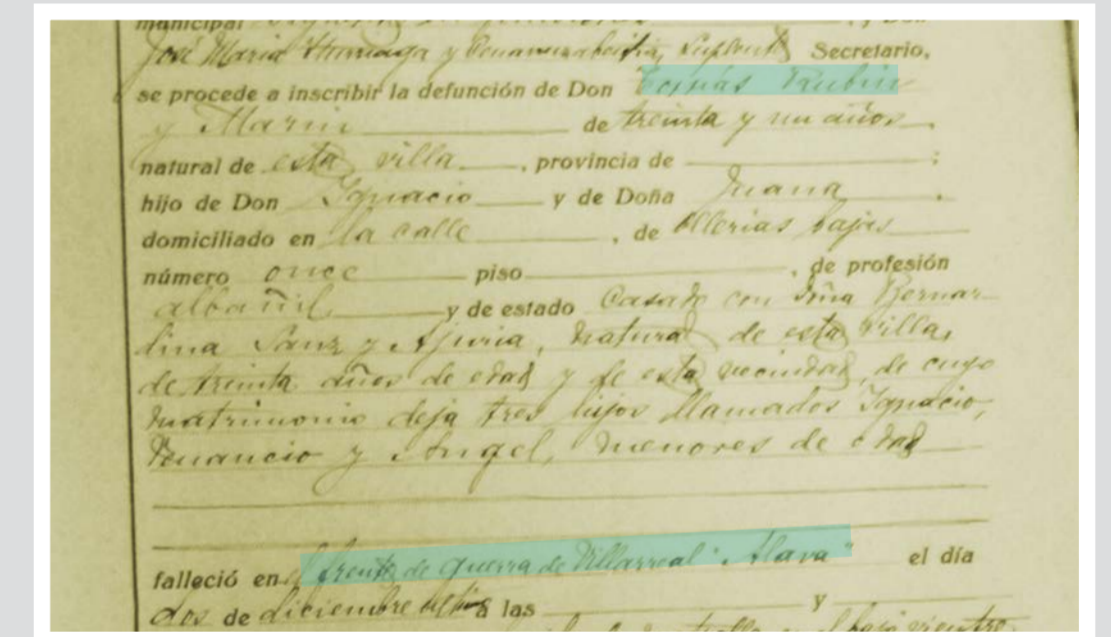 municipal y Don
José María Iturriaga y Suplente Secretario,
se procede a inscribir la defunción de Don Tomás Rubin
y Marin de treinta y un años
natural de esta villa, provincia de ;
hijo de Don Ignacio y de Doña Juana.
domiciliado en la calle, de Ollerias bajas
número once piso, de profesión
albañil y de estado Casado con Doña Bernar-
dina Sanz y Ajuria, natural de esta villa,
de treinta años de edad y de esta vecindad, de cuyo
matrimonio deja tres hijos llamados Ignacio,
Venancio y Angel, menores de edad
falleció en el frente de guerra de Villarreal "Alava" el día
dos de diciembre último a las y
en el bajo vientre